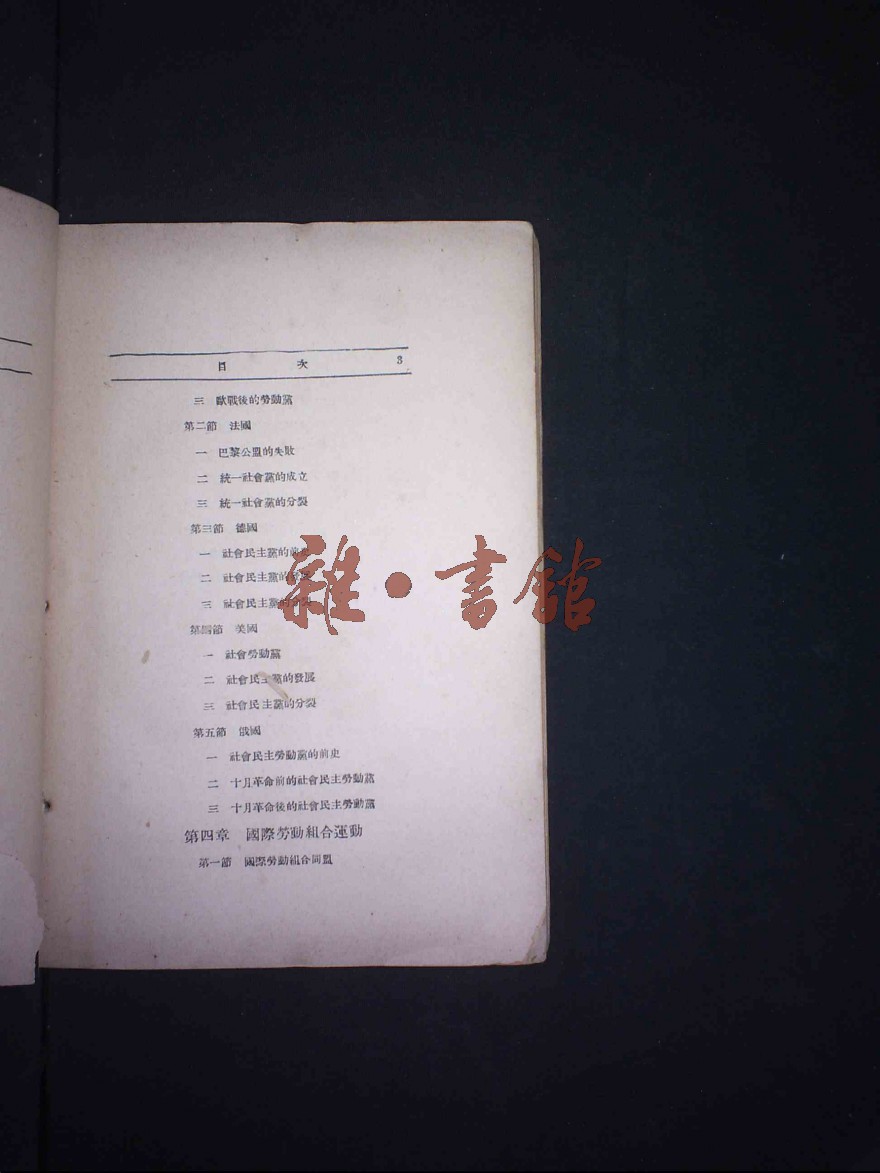 目 次 3
三 歐戰後的勞動黨
第二節 法國
一 巴黎公盟的失敗
二 統一社會黨的成立
三 統一社會黨的分裂
第三節 德國
一 社會民主黨的前史
二 社會民主黨的發展
三 社會民主黨的分裂
雜·書館
第四節 美國
一 社會勞動黨
二 社會民主黨的發展
三 社會民主黨的分裂
第五節 俄國
一 社會民主勞動黨的前史
二 十月革命前的社會民主勞動黨
三 十月革命後的社會民主勞動黨
第四章 國際勞動組合運動
第一節 國際勞動組合同盟